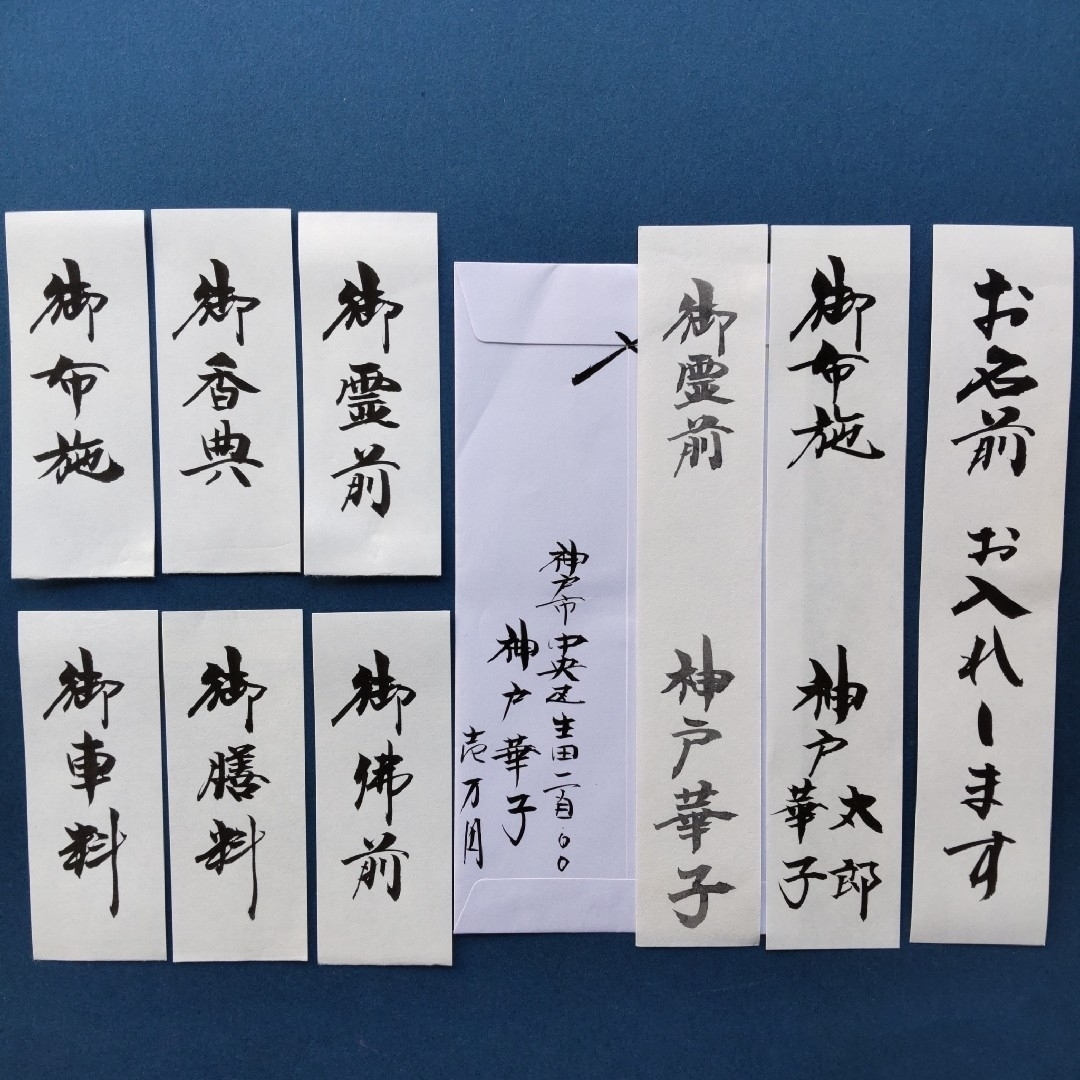 御布施
御香典
御霊前
御車料
御膳料
御佛前
〆
神戸市中央区生田二
神戸華子
壱万円
御霊前
神戸華子
御布施
神戸太郎
華子
お名前 お入れします